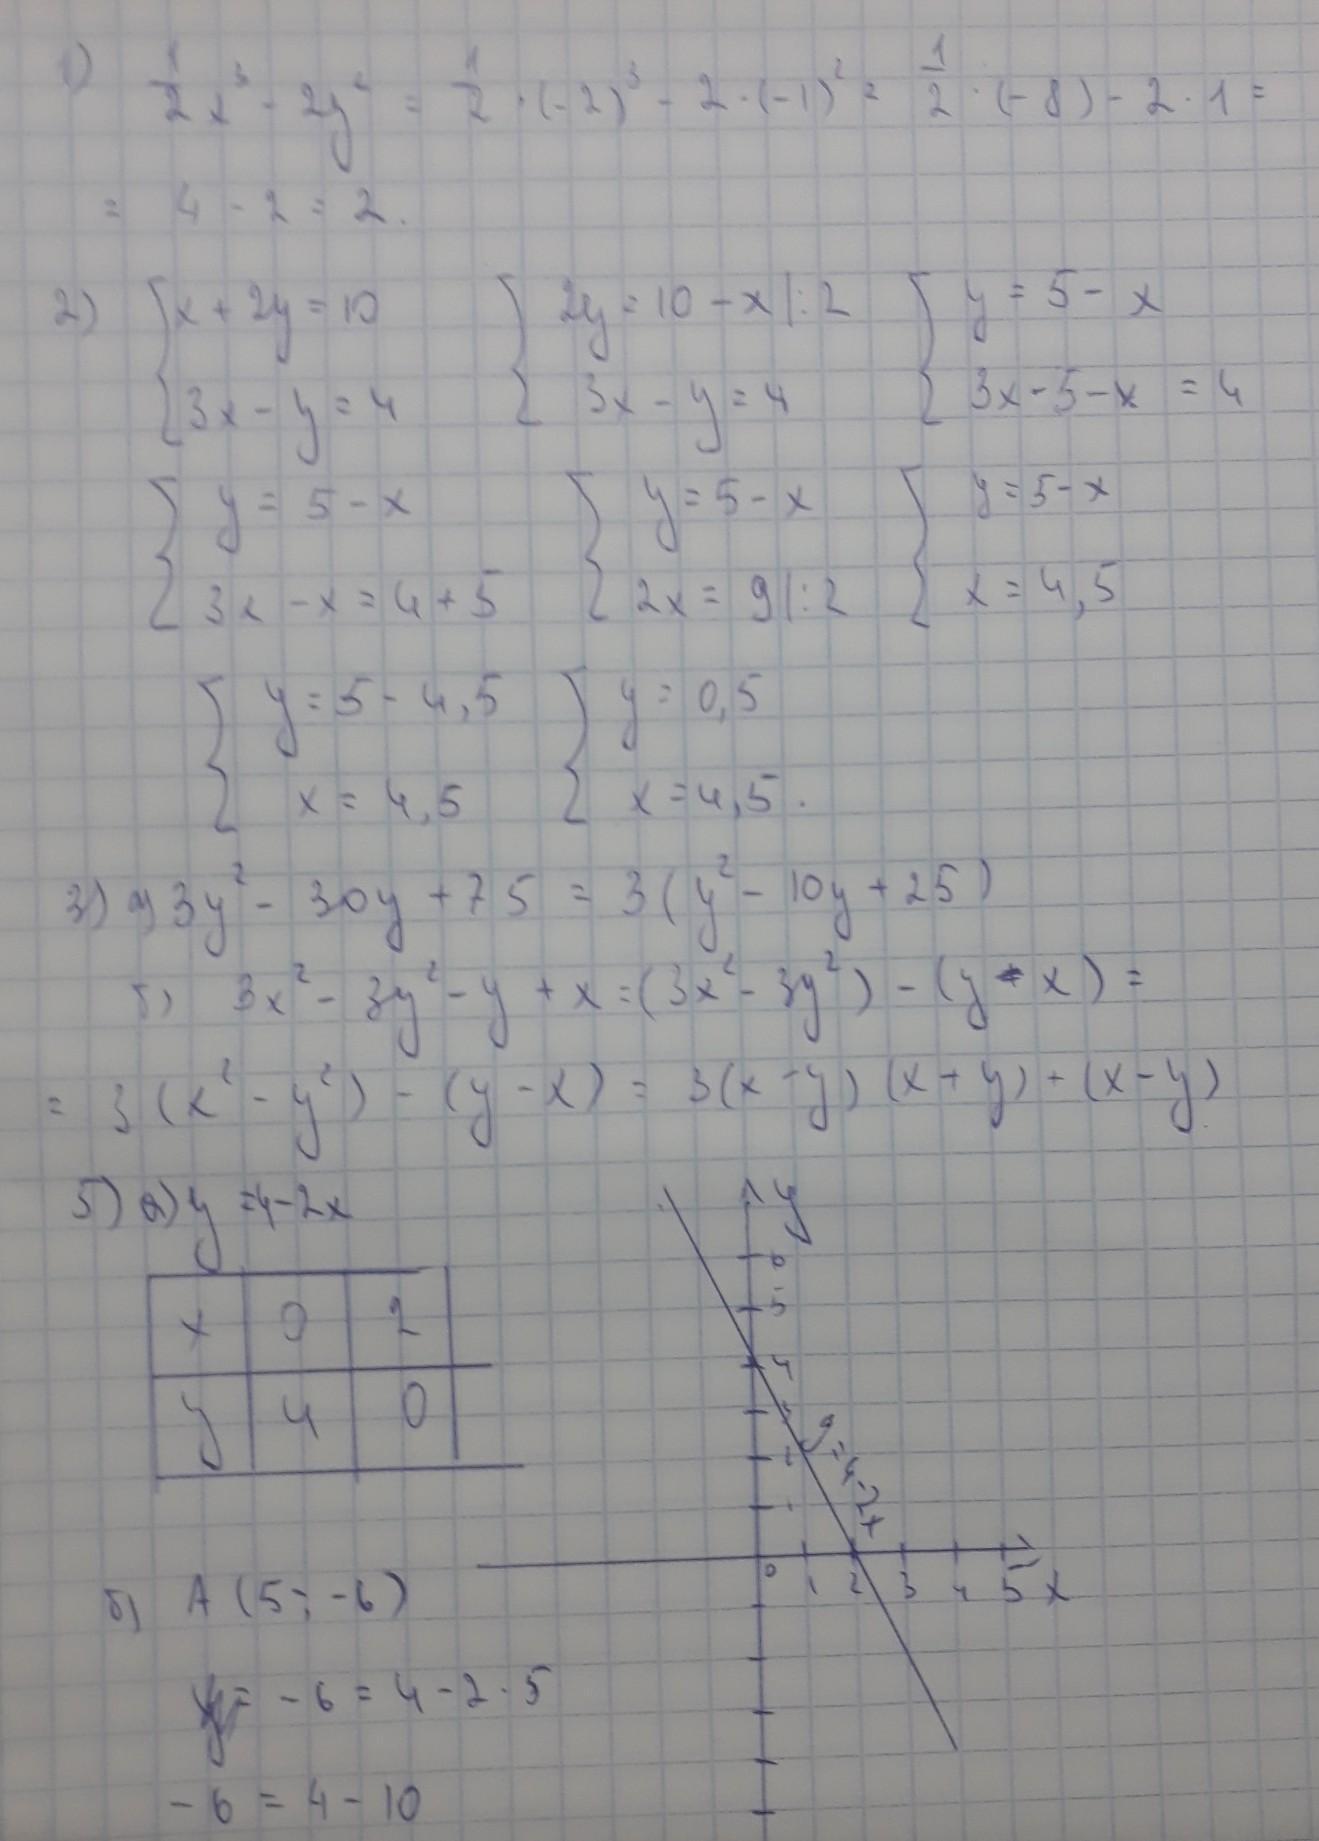 1) 1/2 x³ - 2y² = 1/2 · (-2)³ - 2 · (-1)² = 1/2 · (-8) - 2 · 1 =
= 4 - 2 = 2.
2) { x + 2y = 10 { 2y = 10 - x |: 2 { y = 5 - x
3x - y = 4 3x - y = 4 3x - 5 - x = 4
{ y = 5 - x { y = 5 - x { y = 5 - x
3x - x = 4 + 5 2x = 9 |: 2 x = 4,5
{ y = 5 - 4,5 { y = 0,5
x = 4,5 x = 4,5.
3) а) 3y² - 30y + 75 = 3(y² - 10y + 25)
б) 3x² - 3y² - y + x = (3x² - 3y²) - (y - x) =
= 3(x² - y²) - (y - x) = 3(x - y)(x + y) + (x - y)
5) а) y = 4 - 2x
x 0 2
y 4 0
y
6
5
4
3
2
1
y = 4 - 2x
0 1 2 3 4 5 x
б) A (5; -6)
y = -6 = 4 - 2 · 5
-6 = 4 - 10